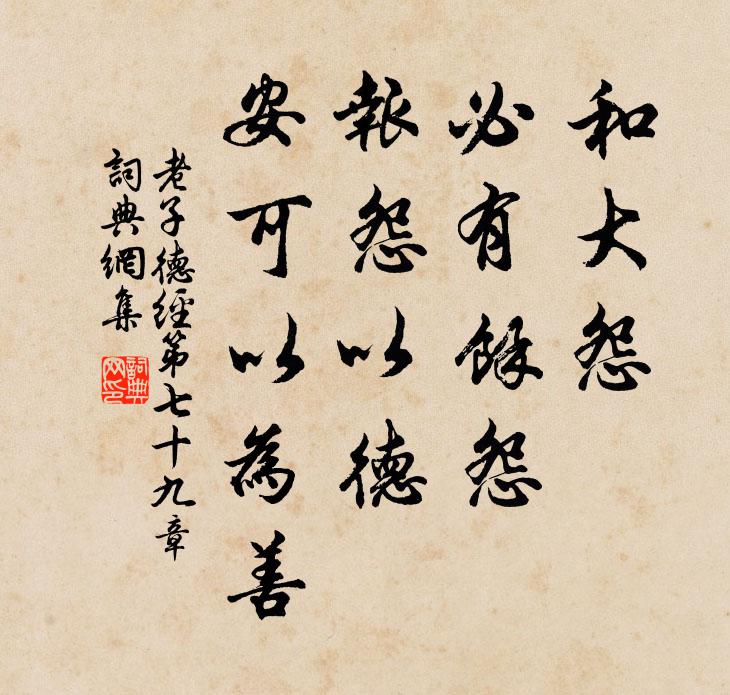 和大怨
必有餘怨
報怨以德
安可以為善
老子德經第七十九章
詞典網集
詞典网印